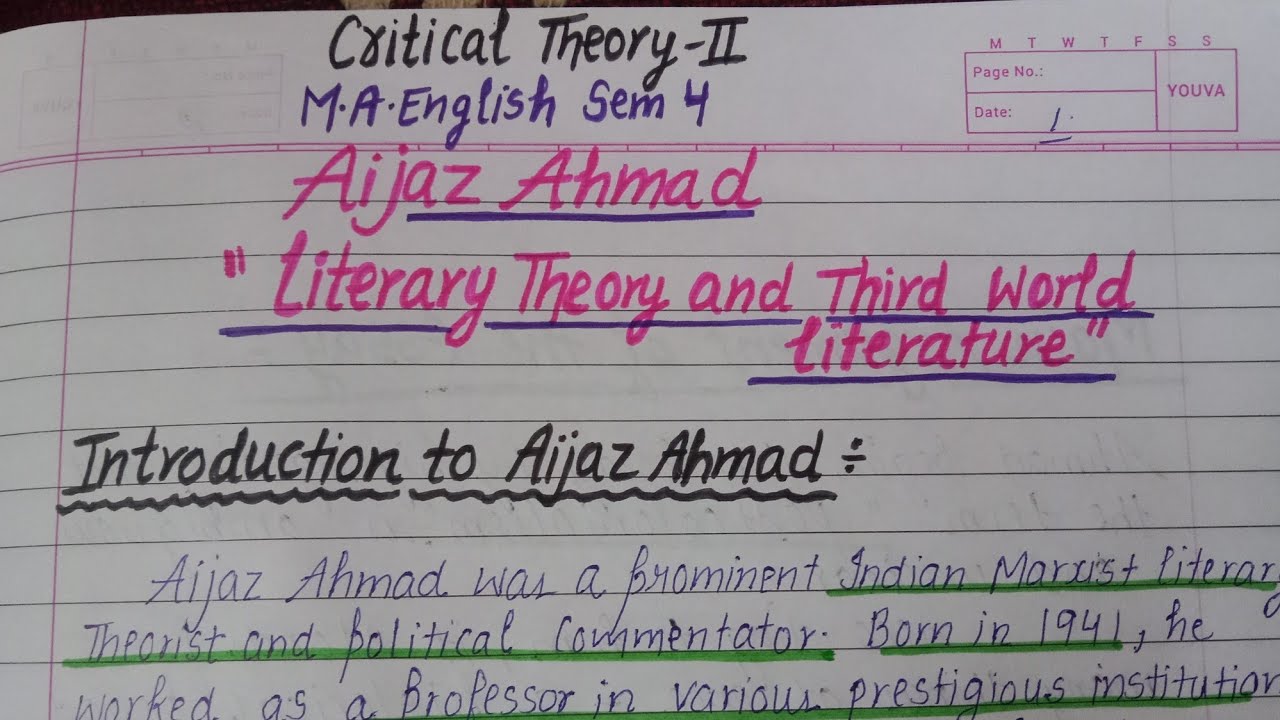 Critical Theory-II
M T W T F S S
Page No.:
YOUVA
M.A.English Sem 4
Date: 1.
Aijaz Ahmad
"Literary Theory and Third World
literature"
Introduction to Aijaz Ahmad ÷
Aijaz Ahmad was a prominent Indian Marxist literary
Theorist and political Commentator. Born in 1941, he
worked as a Professor in various prestigious institution